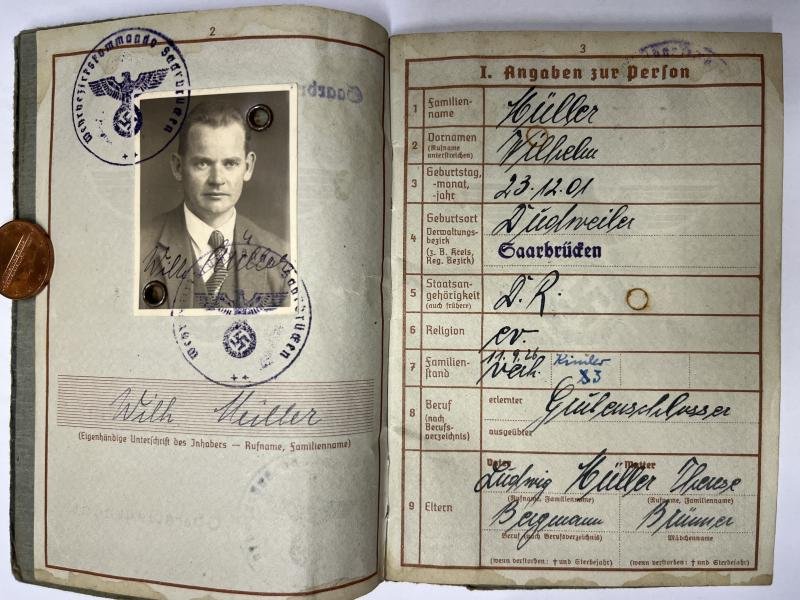 2
Wehrbezirkskommando Saarbrücken
Wilh Müller
Wilh Müller
(Eigenhändige Unterschrift des Inhabers — Rufname, Familienname)
3
I. Angaben zur Person
1 Familien-
name
Müller
2 Vornamen
(Rufname
unterstreichen)
Wilhelm
3 Geburtstag,
-monat,
-jahr
23.12.01
4 Geburtsort
Verwaltungs-
bezirk
(z. B. Kreis,
Reg. Bezirk)
Dudweiler
Saarbrücken
5 Staatsan-
gehörigkeit
(auch frühere)
D. R.
6 Religion
ev.
7 Familien-
stand
11.9.26
verh.
Kinder
3
8 Beruf
(nach
Berufs-
verzeichnis)
erlernter
Grubenschlosser
ausgeübter
9 Eltern
Vater
Mutter
Ludwig Müller
Therese
(Rufname, Familienname)
(Rufname, Familienname)
Bergmann
Brünner
Beruf (nach Berufsverzeichnis)
Mädchenname
(wenn verstorben: † und Sterbejahr)
(wenn verstorben: † und Sterbejahr)